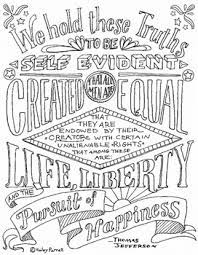 We hold these Truths
TO BE
SELF EVIDENT
THAT ALL
CREATED MEN ARE EQUAL
THAT
THEY ARE
ENDOWED BY THEIR
CREATOR WITH CERTAIN
UNALIENABLE RIGHTS
THAT AMONG THESE
ARE:
LIFE, LIBERTY
AND THE
Pursuit of
Happiness
THOMAS
JEFFERSON